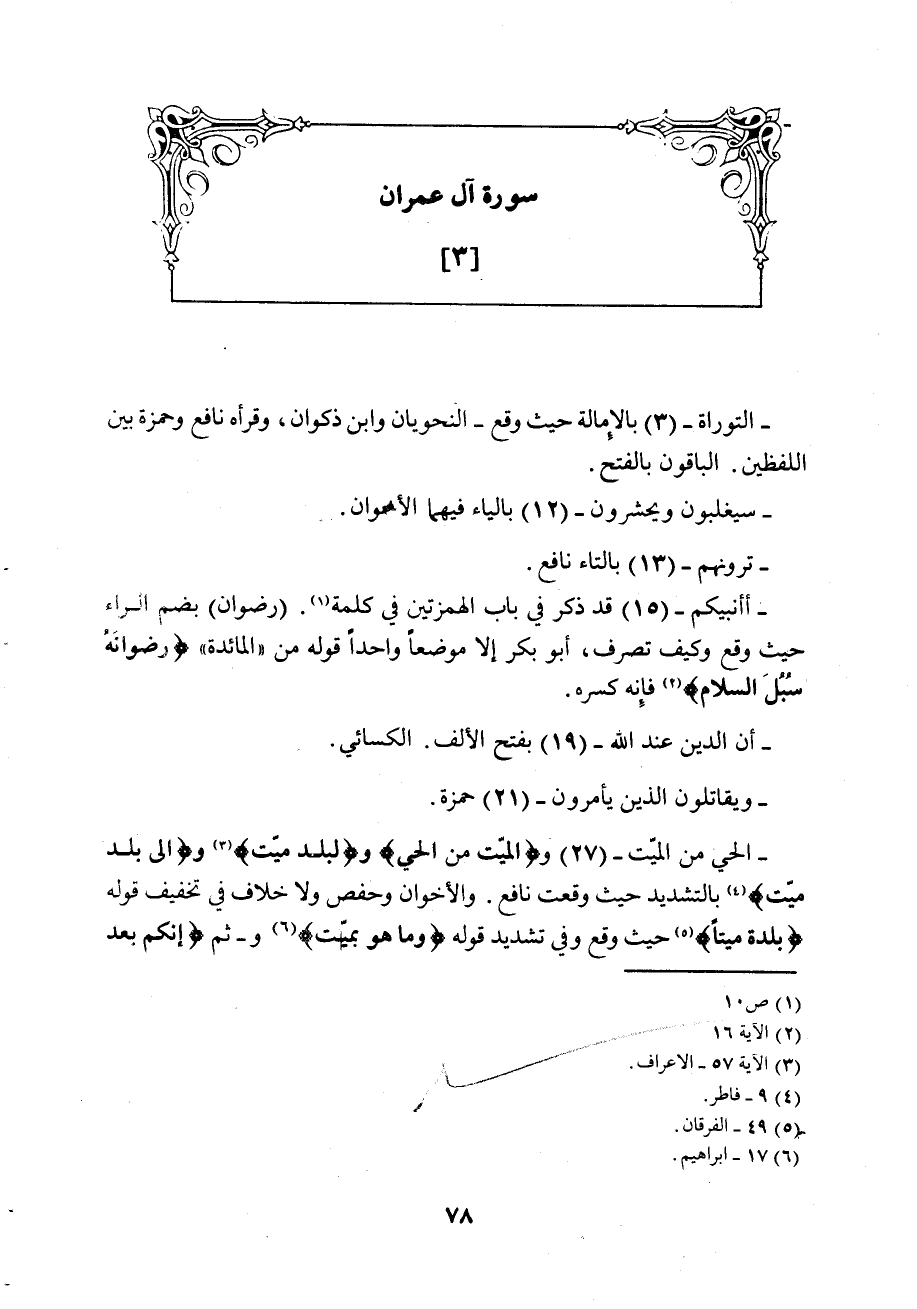 سورة آل عمران
[٣]
ـ التوراة ـ (٣) بالإمالة حيث وقع ـ النحويان وابن ذكوان، وقرأه نافع وحمزة بين
اللفظين. الباقون بالفتح.
ـ سيغلبون ويحشرون ـ (١٢) بالياء فيهما الأخوان.
ـ ترونهم ـ (١٣) بالتاء نافع.
ـ أأنبيكم ـ (١٥) قد ذكر في باب الهمزتين في كلمة(١). (رضوان) بضم الراء
حيث وقع وكيف تصرف، أبو بكر إلا موضعاً واحداً قوله من «المائدة» ﴿رضوانَهُ
سُبُلَ السلام﴾(٢) فإنه كسره.
ـ أن الدين عند الله ـ (١٩) بفتح الألف. الكسائي.
ـ ويقاتلون الذين يأمرون ـ (٢١) حمزة.
ـ الحي من الميّت ـ (٢٧) و﴿الميّت من الحي﴾ و﴿لبلد ميّت﴾(٣) و﴿الى بلد
ميّت﴾(٤) بالتشديد حيث وقعت نافع. والأخوان وحفص ولا خلاف في تخفيف قوله
﴿بلدة ميتاً﴾(٥) حيث وقع وفي تشديد قوله ﴿وما هو بميّت﴾(٦) و ـ ثم ﴿إنكم بعد
(١) ص١٠
(٢) الآية ١٦
(٣) الآية ٥٧ ـ الاعراف.
(٤) ٩ ـ فاطر.
(٥) ٤٩ ـ الفرقان.
(٦) ١٧ ـ ابراهيم.
٧٨